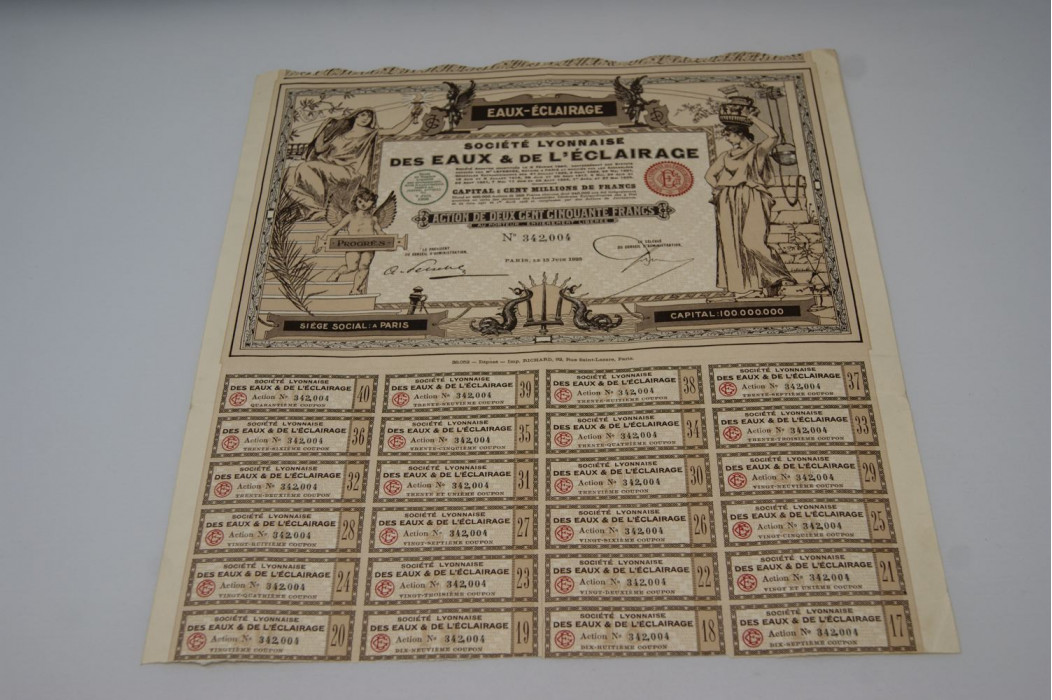 EAUX-ÉCLAIRAGE
SOCIÉTÉ LYONNAISE
DES EAUX & DE L'ÉCLAIRAGE
CAPITAL : CENT MILLIONS DE FRANCS
ACTION DE DEUX CENT CINQUANTE FRANCS
AU PORTEUR ENTIÈREMENT LIBÉRÉE
PROGRÈS
Nº 342,004
LE PRÉSIDENT
DU CONSEIL D'ADMINISTRATION,
PARIS, LE 15 JUIN
SIÈGE SOCIAL : A PARIS
CAPITAL : 100.000.000
Imp. RICHARD, Rue Saint-Lazare, Paris.
SOCIÉTÉ LYONNAISE
DES EAUX & DE L'ÉCLAIRAGE
Action Nº 342,004
QUARANTIÈME COUPON
40
SOCIÉTÉ LYONNAISE
DES EAUX & DE L'ÉCLAIRAGE
Action Nº 342,004
39
SOCIÉTÉ LYONNAISE
DES EAUX & DE L'ÉCLAIRAGE
Action Nº 342,004
TRENTE-HUITIÈME COUPON
38
SOCIÉTÉ LYONNAISE
DES EAUX & DE L'ÉCLAIRAGE
Action Nº 342,004
TRENTE-SEPTIÈME COUPON
37
SOCIÉTÉ LYONNAISE
DES EAUX & DE L'ÉCLAIRAGE
Action Nº 342,004
TRENTE-SIXIÈME COUPON
36
SOCIÉTÉ LYONNAISE
DES EAUX & DE L'ÉCLAIRAGE
Action Nº 342,004
TRENTE-CINQUIÈME COUPON
35
SOCIÉTÉ LYONNAISE
DES EAUX & DE L'ÉCLAIRAGE
Action Nº 342,004
TRENTE-QUATRIÈME COUPON
34
SOCIÉTÉ LYONNAISE
DES EAUX & DE L'ÉCLAIRAGE
Action Nº 342,004
TRENTE-TROISIÈME COUPON
33
SOCIÉTÉ LYONNAISE
DES EAUX & DE L'ÉCLAIRAGE
Action Nº 342,004
TRENTE-DEUXIÈME COUPON
32
SOCIÉTÉ LYONNAISE
DES EAUX & DE L'ÉCLAIRAGE
Action Nº 342,004
TRENTE ET UNIÈME COUPON
31
SOCIÉTÉ LYONNAISE
DES EAUX & DE L'ÉCLAIRAGE
Action Nº 342,004
TRENTIÈME COUPON
30
SOCIÉTÉ LYONNAISE
DES EAUX & DE L'ÉCLAIRAGE
Action Nº 342,004
VINGT-NEUVIÈME COUPON
29
SOCIÉTÉ LYONNAISE
DES EAUX & DE L'ÉCLAIRAGE
Action Nº 342,004
28
SOCIÉTÉ LYONNAISE
DES EAUX & DE L'ÉCLAIRAGE
Action Nº 342,004
VINGT-SEPTIÈME COUPON
27
SOCIÉTÉ LYONNAISE
DES EAUX & DE L'ÉCLAIRAGE
Action Nº 342,004
VINGT-SIXIÈME COUPON
26
SOCIÉTÉ LYONNAISE
DES EAUX & DE L'ÉCLAIRAGE
Action Nº 342,004
VINGT-CINQUIÈME COUPON
25
SOCIÉTÉ LYONNAISE
DES EAUX & DE L'ÉCLAIRAGE
Action Nº 342,004
VINGT-QUATRIÈME COUPON
24
SOCIÉTÉ LYONNAISE
DES EAUX & DE L'ÉCLAIRAGE
Action Nº 342,004
VINGT-TROISIÈME COUPON
23
SOCIÉTÉ LYONNAISE
DES EAUX & DE L'ÉCLAIRAGE
Action Nº 342,004
VINGT-DEUXIÈME COUPON
22
SOCIÉTÉ LYONNAISE
DES EAUX & DE L'ÉCLAIRAGE
Action Nº 342,004
VINGT ET UNIÈME COUPON
21
SOCIÉTÉ LYONNAISE
DES EAUX & DE L'ÉCLAIRAGE
Action Nº 342,004
VINGTIÈME COUPON
20
SOCIÉTÉ LYONNAISE
DES EAUX & DE L'ÉCLAIRAGE
Action Nº 342,004
DIX-NEUVIÈME COUPON
19
SOCIÉTÉ LYONNAISE
DES EAUX & DE L'ÉCLAIRAGE
Action Nº 342,004
DIX-HUITIÈME COUPON
18
SOCIÉTÉ LYONNAISE
DES EAUX & DE L'ÉCLAIRAGE
Action Nº 342,004
DIX-SEPTIÈME COUPON
17